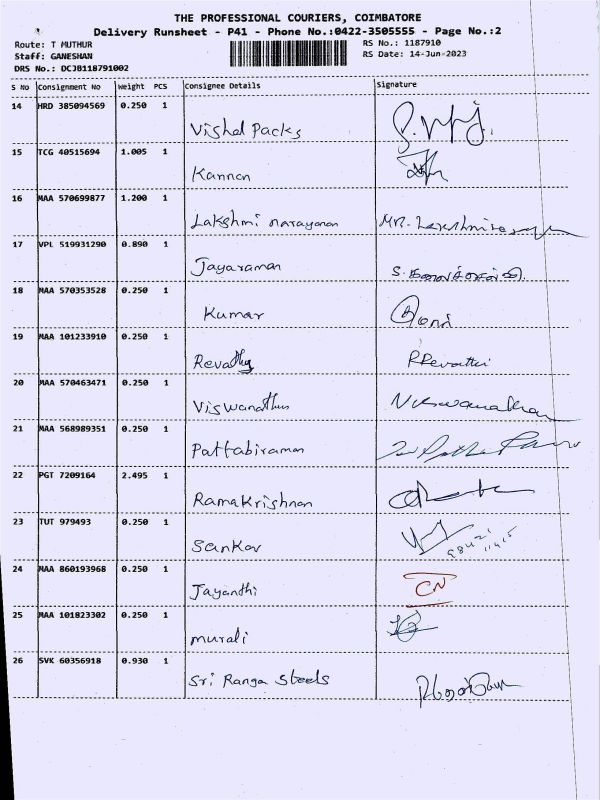 THE PROFESSIONAL COURIERS, COIMBATORE
Delivery Runsheet - P41 - Phone No.:0422-3505555 - Page No.:2
Route: T MUTHUR RS No.: 1187910
Staff: GANESHAN RS Date: 14-Jun-2023
DRS No.: DCJB118791002
S No Consignment No Weight PCS Consignee Details Signature
14 HRD 385094569 0.250 1
Vishal Packs
15 TCG 40515694 1.005 1
Kannan
16 MAA 570699877 1.200 1
Lakshmi narayanan
17 VPL 519931290 0.890 1
Jayaraman
18 MAA 570353528 0.250 1
Kumar
19 MAA 101233910 0.250 1
Revathy R Revathi
20 MAA 570463471 0.250 1
Viswanathan
21 MAA 568989351 0.250 1
Pattabiraman
22 PGT 7209164 2.495 1
Ramakrishnan
23 TUT 979493 0.250 1
Sankar
24 MAA 860193968 0.250 1
Jayanthi CN
25 MAA 101823302 0.250 1
murali
26 SVK 60356918 0.930 1
Sri Ranga Steels